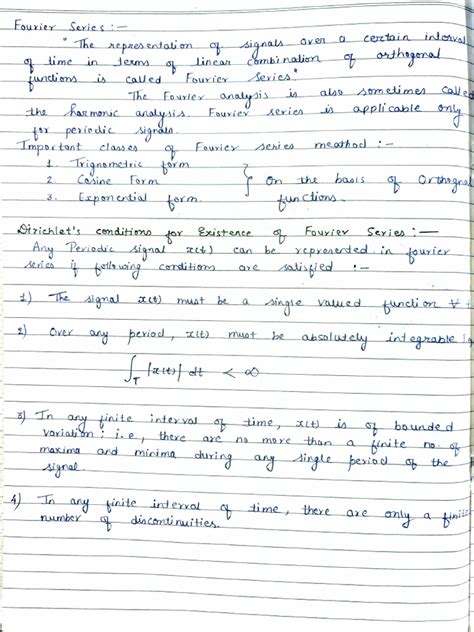 Fourier Series :—
"The representation of signals over a certain interval
of time in terms of linear combination of orthogonal
functions is called Fourier Series."
The Fourier analysis is also sometimes called
the harmonic analysis. Fourier series is applicable only
for periodic signals.
Important classes of Fourier series meathod :—
1. Trignometric form
2. Cosine Form } On the basis of Orthogonal
3. Exponential form. functions.
Dirichlet's conditions for Existence of Fourier Series :—
Any Periodic signal x(t) can be represented in fourier
series if following conditions are satisfied :—
1) The signal x(t) must be a single valued function ∀ t
2) Over any period, x(t) must be absolutely integrable
∫_T |x(t)| dt < ∞
3) In any finite interval of time, x(t) is of bounded
variation; i.e., there are no more than a finite no. of
maxima and minima during any single period of the
signal.
4) In any finite interval of time, there are only a finite
number of discontinuities.